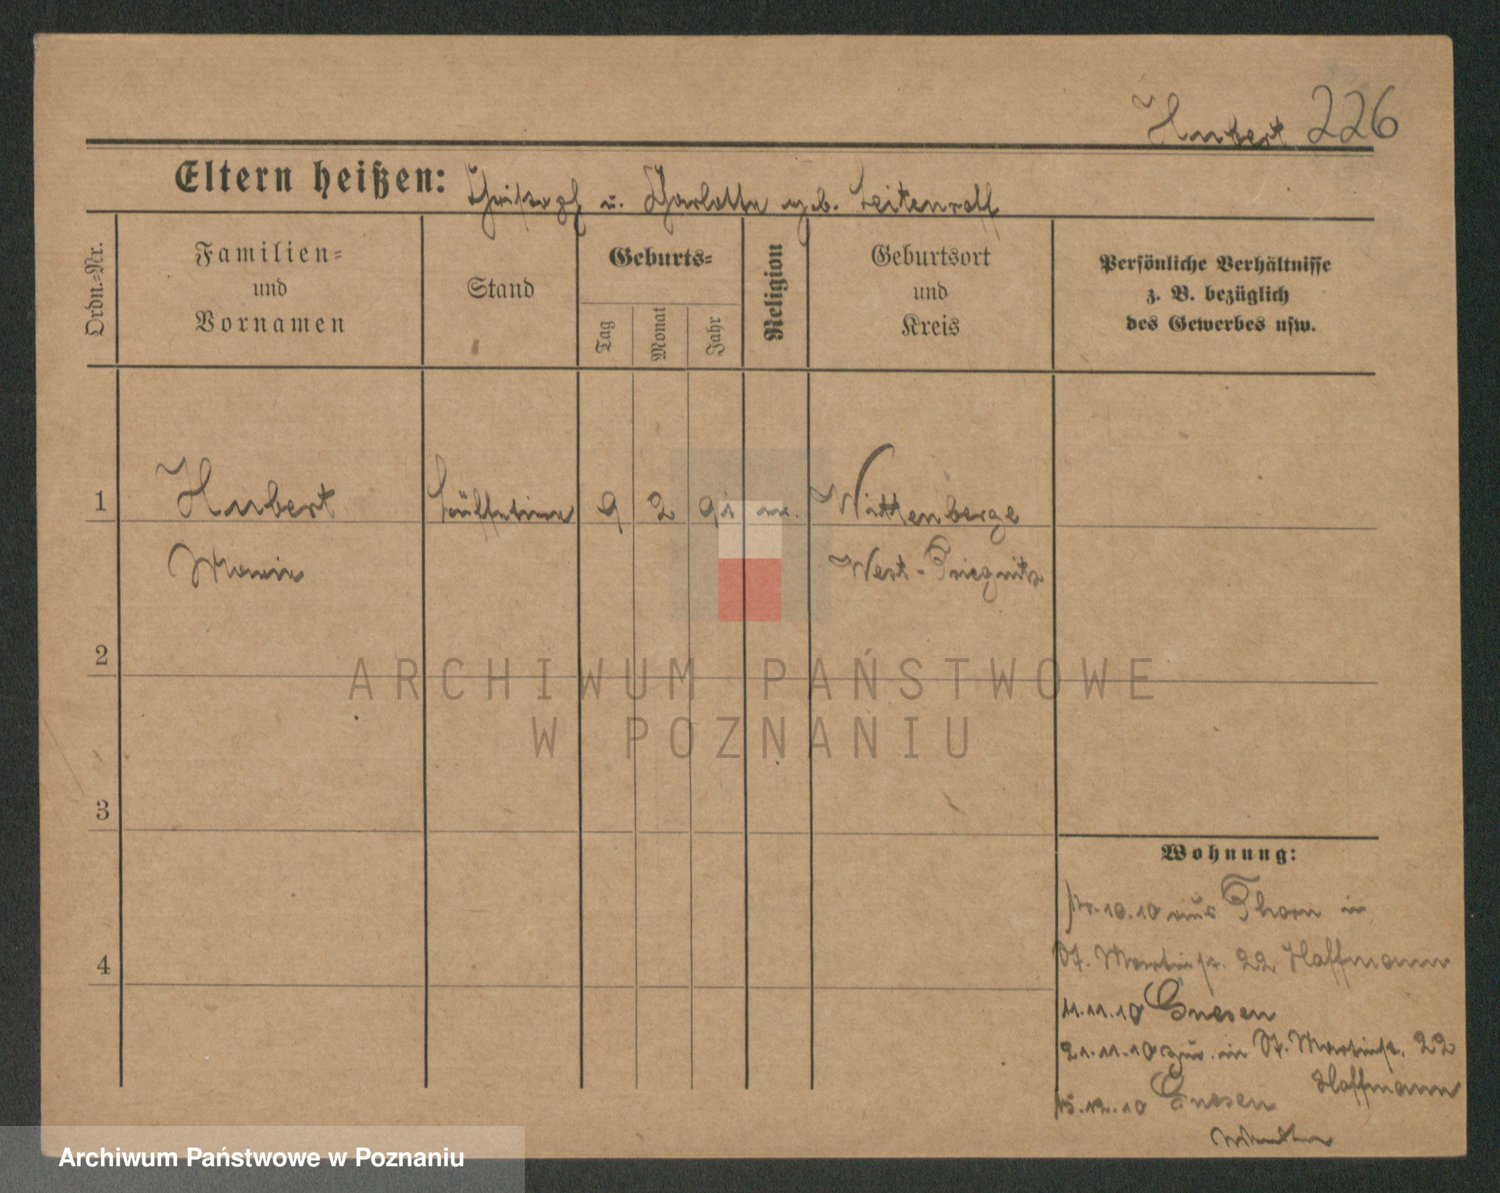 Hubert 226
Eltern heißen: Christoph u. Charlotte geb. Leitenroff
Ordn.-Nr.
Familien-
und
Vornamen
Stand
Geburts-
Tag
Monat
Jahr
Religion
Geburtsort
und
Kreis
Persönliche Verhältnisse
z. B. bezüglich
des Gewerbes usw.
1 Hubert 9 2 91 Wittenberge
Marie West-Priegnitz
2
3
4
Wohnung:
10.10 aus Thorn in
St. Martinstr. 22 Hoffmann
11.11.10 Gnesen
21.11.10 zur. in St. Martinstr. 22
Hoffmann
15.12.10 Gnesen
ARCHIWUM PAŃSTWOWE
W POZNANIU
Archiwum Państwowe w Poznaniu